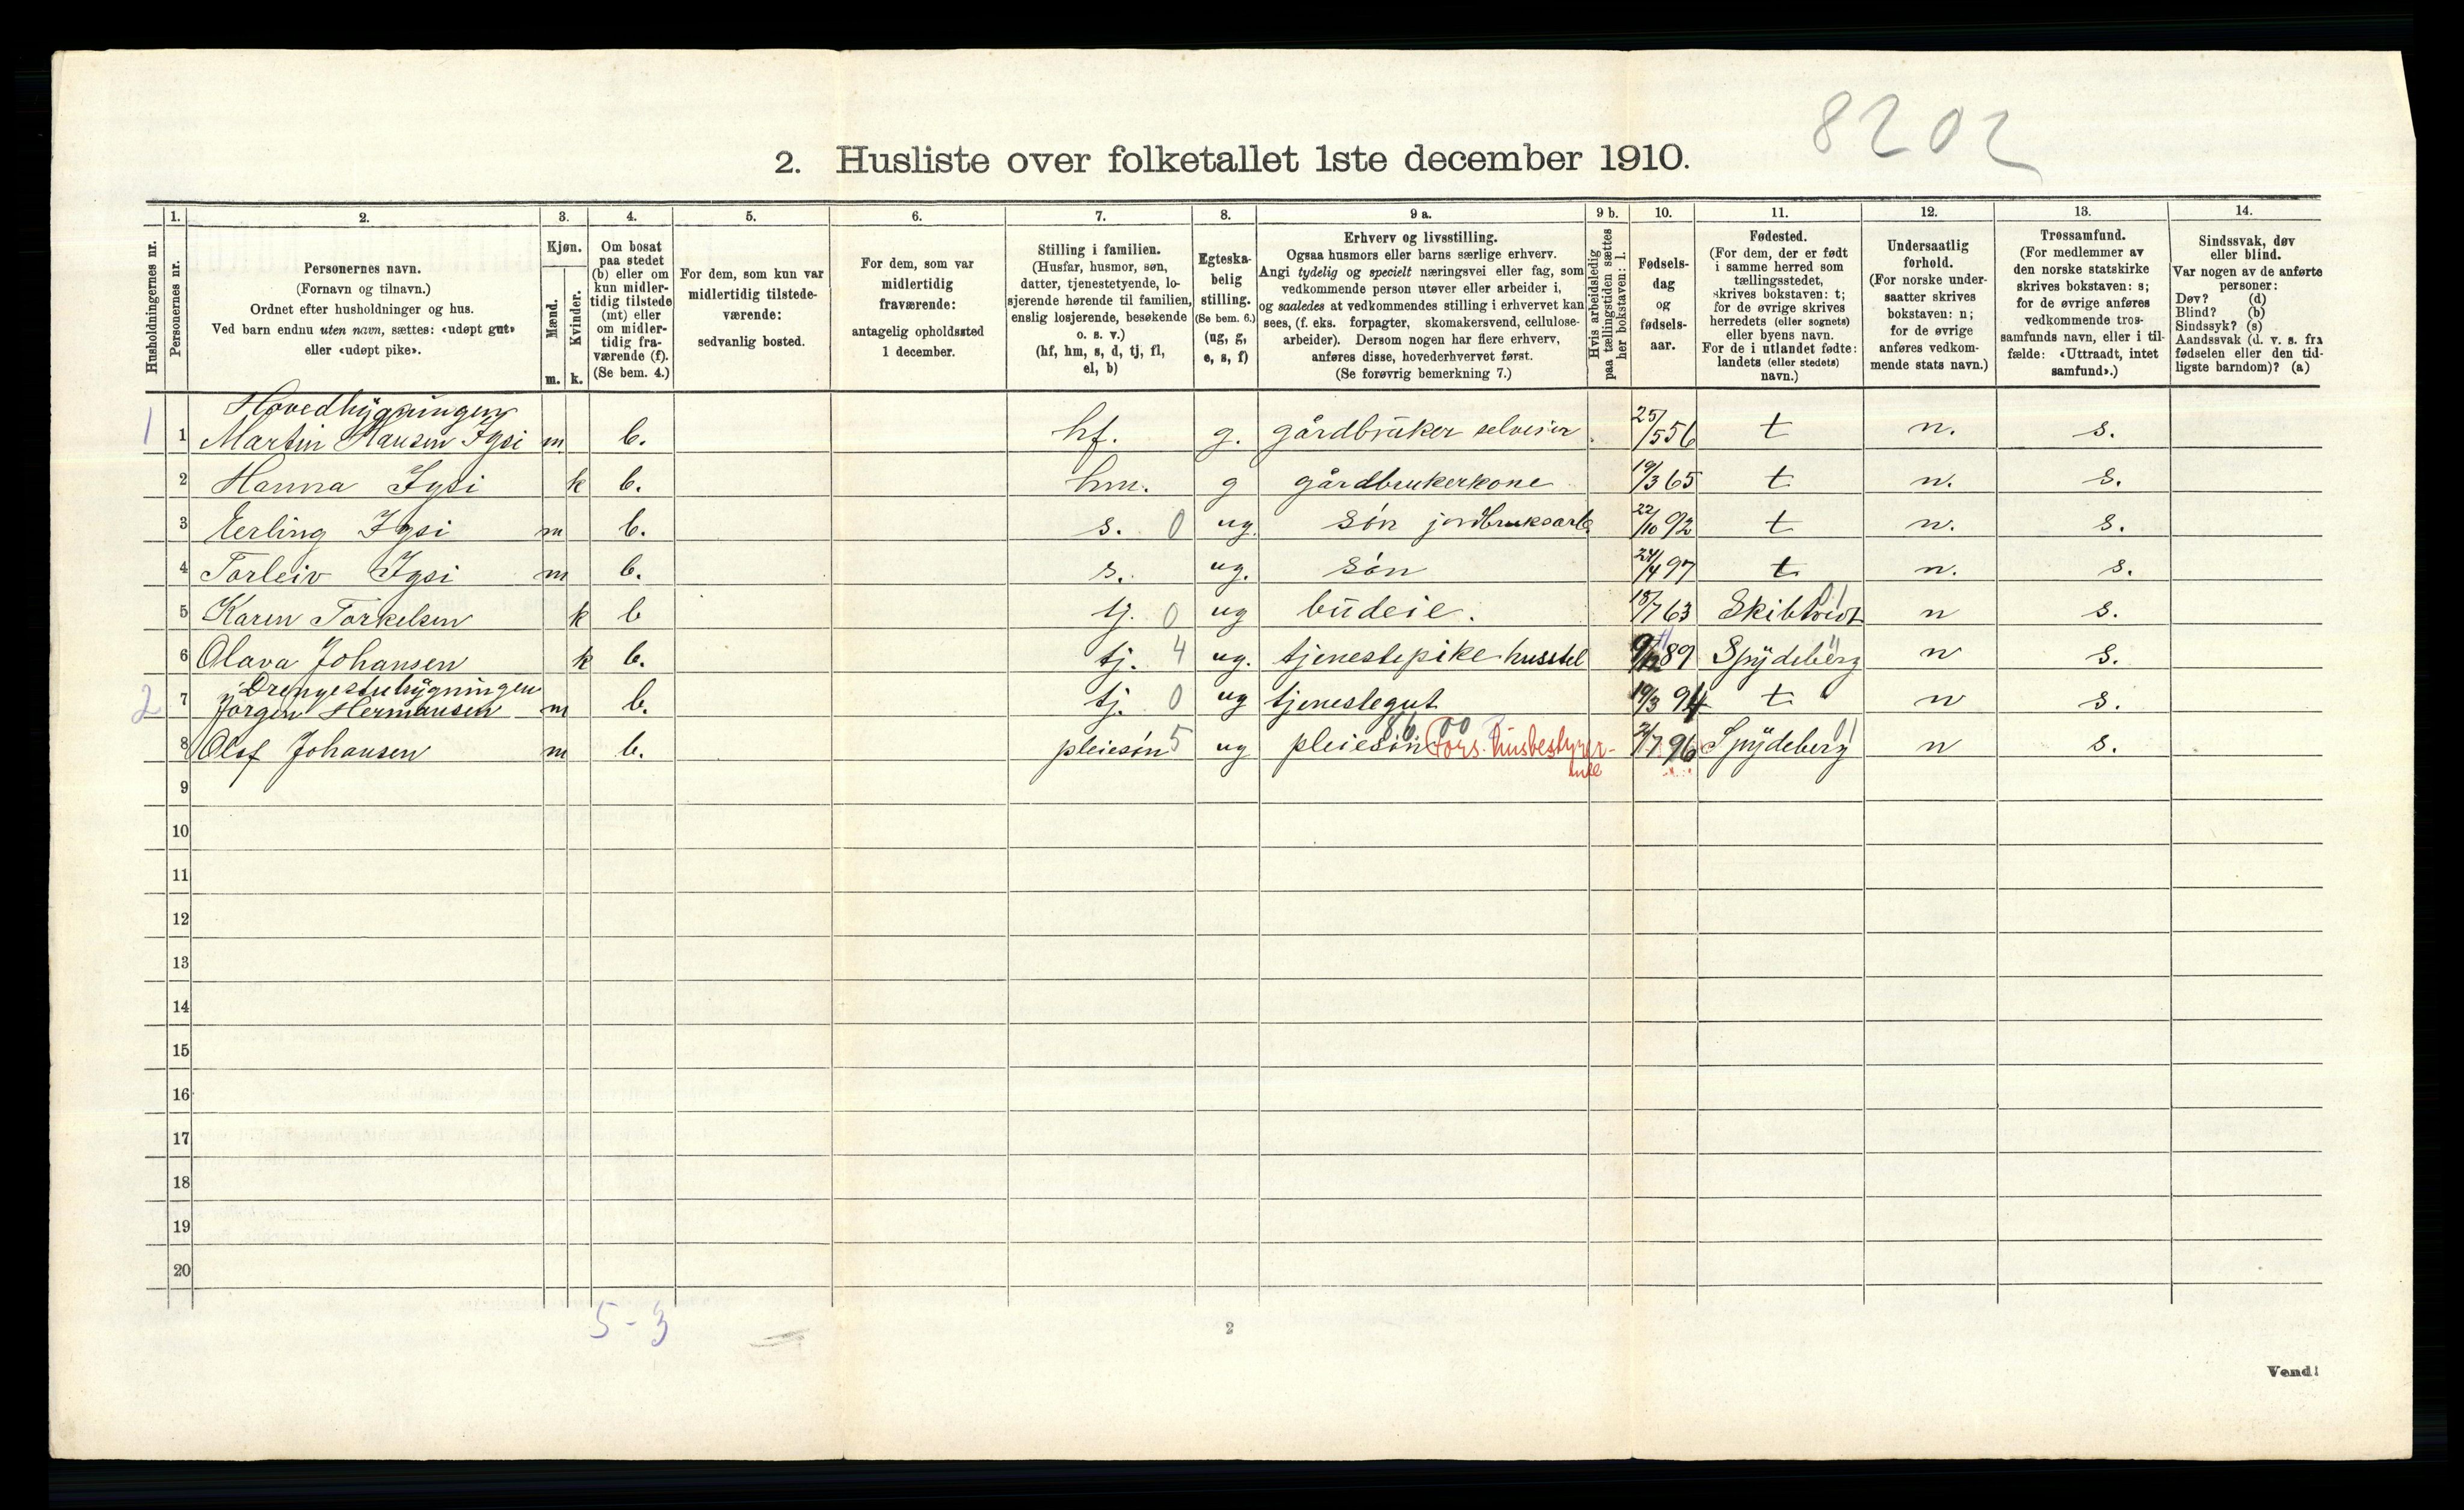 8202
2. Husliste over folketallet 1ste december 1910.
Husholdningernes nr.
1.
Personernes nr.
2.
Personernes navn.
(Fornavn og tilnavn.)
Ordnet efter husholdninger og hus.
Ved barn endnu uten navn, sættes: «udøpt gut»
eller «udøpt pike».
3.
Kjøn.
Mænd.
Kvinder.
m. k.
4.
Om bosat
paa stedet
(b) eller om
kun midler-
tidig tilstede
(mt) eller
om midler-
tidig fra-
værende (f).
(Se bem. 4.)
5.
For dem, som kun var
midlertidig tilstede-
værende:
sedvanlig bosted.
6.
For dem, som var
midlertidig
fraværende:
antagelig opholdssted
1 december.
7.
Stilling i familien.
(Husfar, husmor, søn,
datter, tjenestetyende, lo-
sjerende hørende til familien,
enslig losjerende, besøkende
o. s. v.)
(hf, hm, s, d, tj, fl,
el, b)
8.
Egteska-
belig
stilling.
(Se bem. 6.)
(ug, g,
e, s, f)
9 a.
Erhverv og livsstilling.
Ogsaa husmors eller barns særlige erhverv.
Angi tydelig og specielt næringsvei eller fag, som
vedkommende person utøver eller arbeider i,
og saaledes at vedkommendes stilling i erhvervet kan
sees, (f. eks. forpagter, skomakersvend, cellulose-
arbeider). Dersom nogen har flere erhverv,
anføres disse, hovederhvervet først.
(Se forøvrig bemerkning 7.)
9 b.
Hvis arbeidsledig
paa tællingstiden sættes
her bokstaven: l.
10.
Fødsels-
dag
og
fødsels-
aar.
11.
Fødested.
(For dem, der er født
i samme herred som
tællingsstedet,
skrives bokstaven: t;
for de øvrige skrives
herredets (eller sognets)
eller byens navn.
For de i utlandet fødte:
landets (eller stedets)
navn.)
12.
Undersaatlig
forhold.
(For norske under-
saatter skrives
bokstaven: n;
for de øvrige
anføres vedkom-
mende stats navn.)
13.
Trossamfund.
(For medlemmer av
den norske statskirke
skrives bokstaven: s;
for de øvrige anføres
vedkommende tros-
samfunds navn, eller i til-
fælde: «Uttraadt, intet
samfund».)
14.
Sindssvak, døv
eller blind.
Var nogen av de anførte
personer:
Døv? (d)
Blind? (b)
Sindssyk? (s)
Aandssvak (d. v. s. fra
fødselen eller den tid-
ligste barndom)? (a)
Hovedbygningen
1 1 Martin Hansen Igsi m b. hf. g. gårdbruker selveier 25/5 56 t n. s.
2 Hanna Igsi k b. hm. g gårdbrukerkone 19/3 65 t n. s.
3 Erling Igsi m b. s. 0 ug. søn jordbruksarb. 22/10 92 t n. s.
4 Torleiv Igsi m b. s. ug. søn 24/4 97 t n. s.
5 Karen Torkelsen k b tj. 0 ug budeie. 18/7 63 n s.
6 Olava Johansen k b. tj. 4 ug. tjenestepike husstel 89 Spydeberg n s.
Drengestubygningen
2 7 Jørgen Hermansen m b. tj. 0 ug tjenestegut 19/3 94 t n s.
8 Olof Johansen m b. pleiesøn 5 ug pleiesøn Fors. husbestyrer- 96 Spydeberg n s.
9
10
11
12
13
14
15
16
17
18
19
20
5-3
2
Vend!